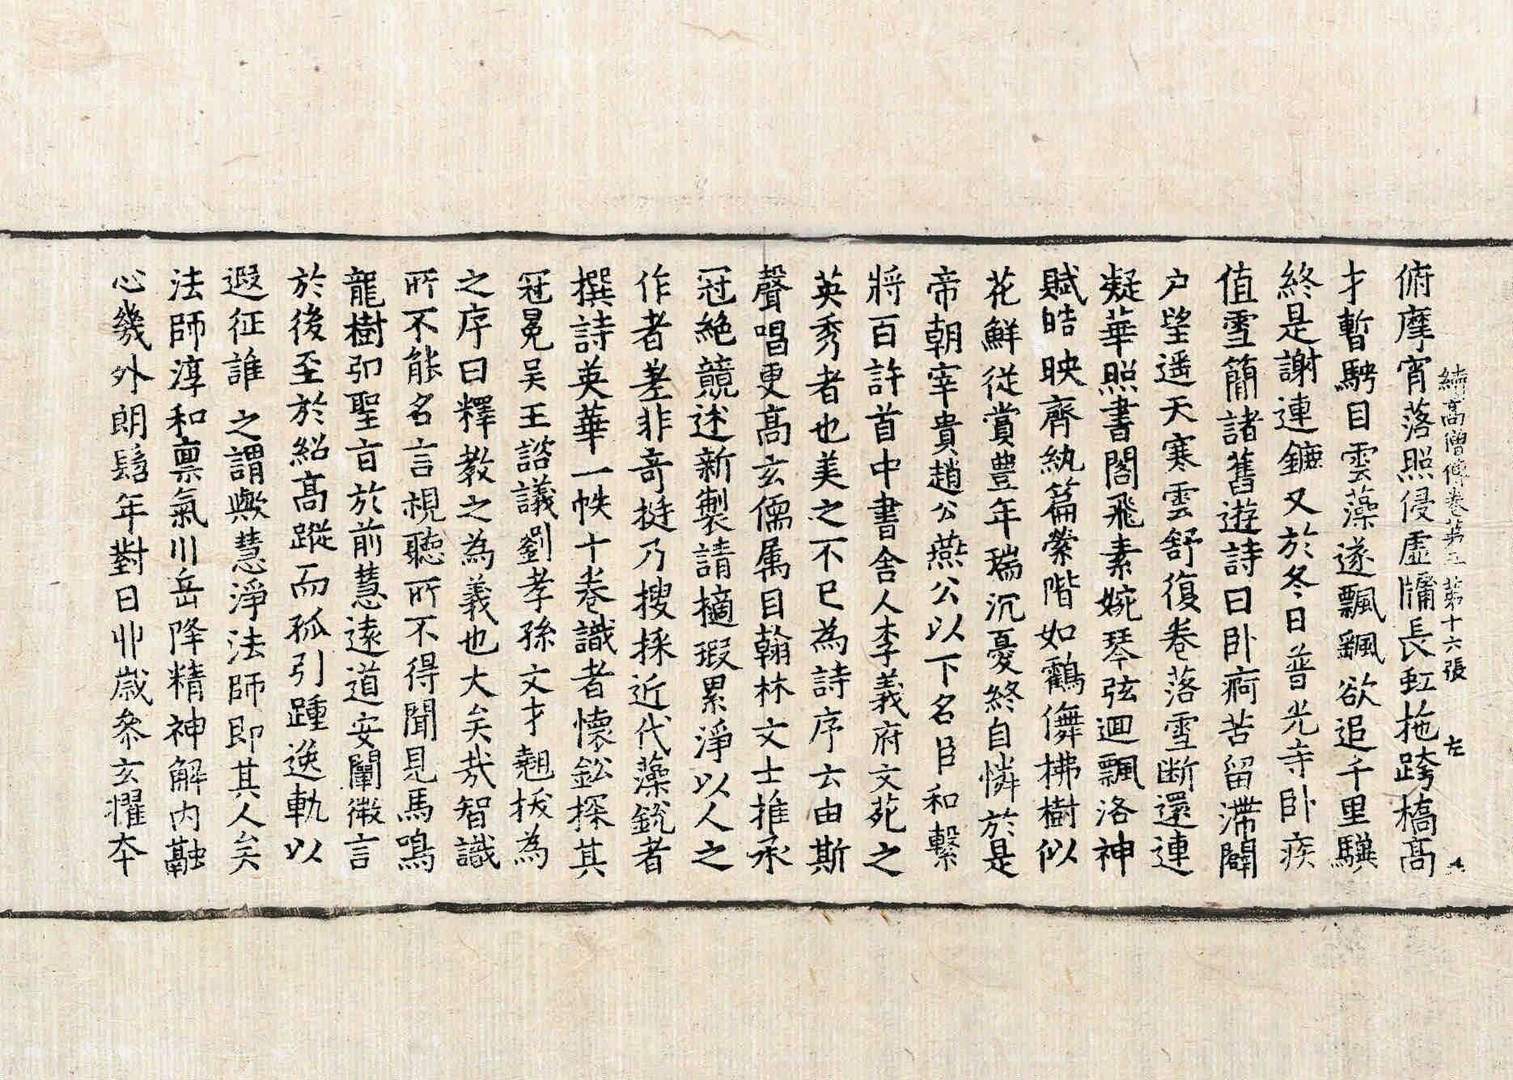 續高僧傳卷第三 第十六張 左
俯摩霄落照侵虛牖長虹拖跨橋高
才暫騁目雲藻遂飄颻欲追千里驥
終是謝連鑣又於冬日普光寺卧疾
值雪簡諸舊遊詩曰卧痾苦留滯闢
户望遥天寒雲舒復卷落雪断還連
凝華照書閣飛素婉琴弦迴飄洛神
賦皓映齊紈篇縈階如鶴儛拂樹似
花鮮從賞豊年瑞沉憂終自憐於是
帝朝宰貴趙公燕公以下名臣和繫
將百許首中書舍人李義府文苑之
英秀者也美之不已為詩序云由斯
聲唱更高玄儒属目翰林文士推承
冠絶競述新製請擿瑕累淨以人之
作者差非奇挺乃搜採近代藻銳者
撰詩英華一帙十卷識者懷鈆探其
冠冕吴王諮議劉孝孫文才翹拔為
之序曰釋教之為義也大矣哉智識
所不能名言視聽所不得聞見馬鳴
龍樹弘聖旨於前慧遠道安闡微言
於後至於紹高蹤而孤引踵逸軌以
遐征誰之謂歟慧淨法師即其人矣
法師淳和禀氣川岳降精神解内融
心幾外朗髫年對日丱歲叅玄擢本